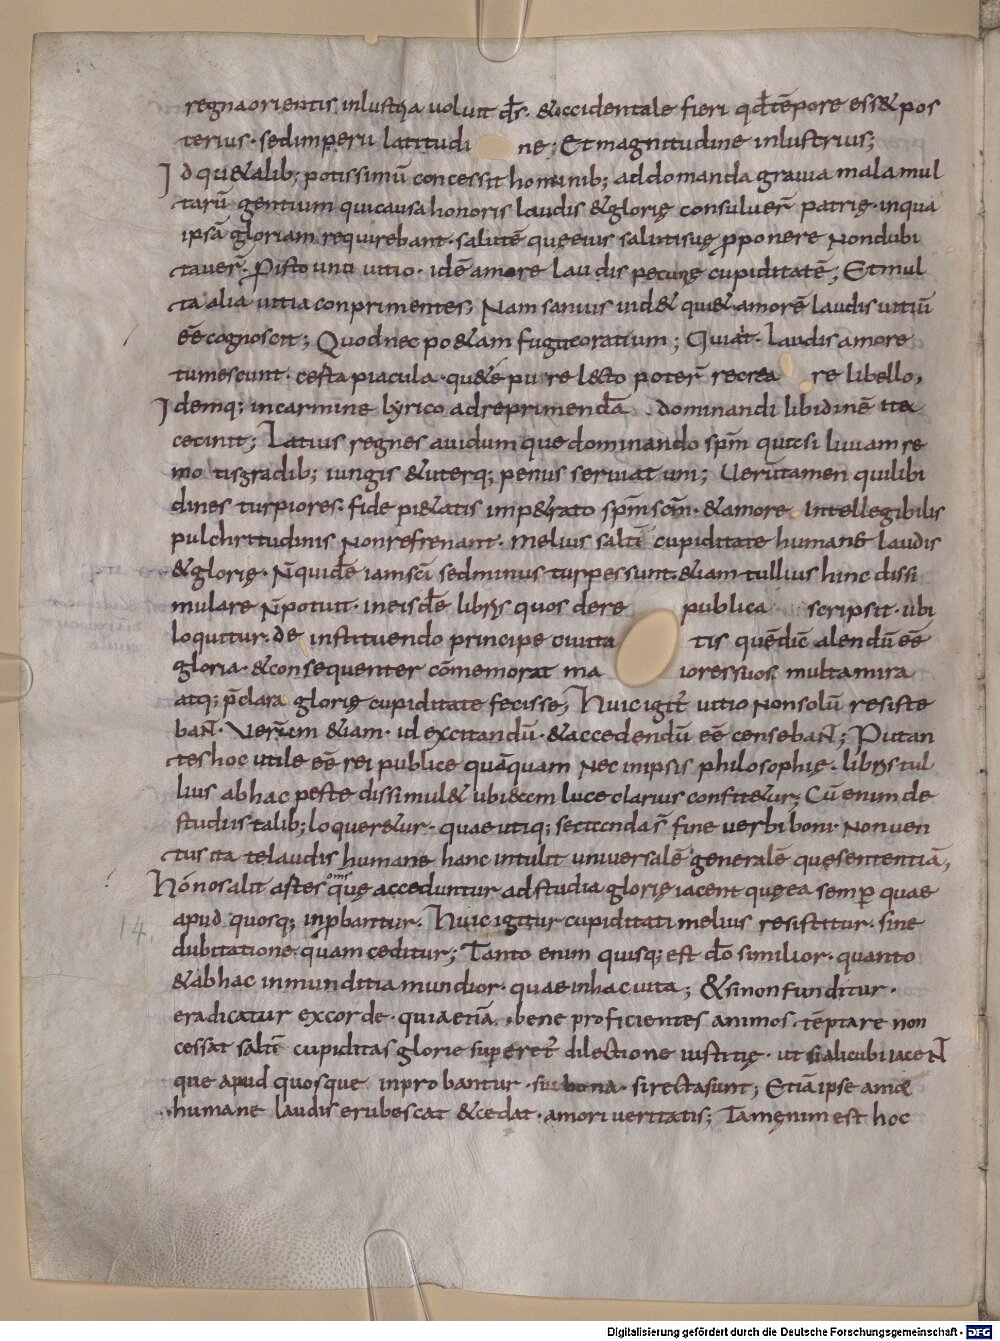 regna orientis inlustria uoluit d̄s. &occidentale fieri qđ tēpore ess& pos
terius. sed imperii latitudi ne; Et magnitudine inlustrius;
Id qu&alib; potissimū concessit hominib; addomanda grauia mala mul
tarū gentium qui causa honoris laudis &glorię consuluer̄ patrię. inqua
ipsā gloriam requirebant. salutē quęeius saluti suę p̱ponere Nondubi
tauer̄. P̱ isto uno uitio. idē amore laudis pecunię cupiditatē; Et mul
ta alia uitia conprimentes; Nam sanius uid& qui&amorē laudis uitiū
eē̄ cognoscit; Quod nec po&am fugit oratium; Qui ait. Laudis amore
tumescunt. certa piacula. quęte pure lecto poter̄ recrea re libello,
Idemq; incarmine lyrico adreprimendā dominandi libidinē ita
cecinit; Latius regnes auidum que dominando sp̄m quā si liuiam re
motis gradib; iungis &uterq; penus seruiat uni; Uerūtamen qui libi
dines turpiores. fide pi&atis imp&rato sp̄m sc̄m. &amore Intellegibilis
pulchritudinis Non refrenant. melius saltī cupiditate humanę laudis
&glorię. N̄ quidē iam sc̄i sed minus turpes sunt. &iam tullius hinc dissi
mulare n̄ potuit. ineisdē libris quos dere publica scripsit. ubi
loquitur. de instituendo principe ciuita tis quē dic̄ alendū eē̄
gloria. &consequenter cōmemorat ma iores suos multa mira
atq; p̄clara glorię cupiditate fecisse, Huic igit̄ uitio Nonsolū resiste
baNT. Uerum &iam. id excitandū. &accedendū eē̄ censebaNT; Putan
tes hoc utile eē̄ rei publice quāquam Nec inipsis philosophię. libris tul
lius ab hac peste dissimul& ubi eam luce clarius confit&ur; Cū enim de
studiis talib; loquer&ur. quae utiq; sectanda s̄ fine ueri boni. Non uen
tus ita te laudis humane hanc intulit uniuersalē generalē quę sententiā,
Honos alit artes om̄s quę acceduntur ad studia glorię iacent quę ea semp̱ quae
apud quosq; inp̱bantur. Huic igitur cupiditati melius resistitur. sine
14.
dubitatione quam ceditur; Tanto enim quisq; est dō similior. quanto
&ab hac inmunditia mundior. quae inhac uita; &si non funditur.
eradicatur ex corde. quia etiā. bene proficientes animos. tēptare non
cessāt saltī cupiditas glorie super&̄ dilectione iustitię. ut si alicubi iaceNT
que apud quosque inprobantur. si bona. si recta sunt; Etiā ipse amor
humane laudis erubescat &cedat. amori ueritatis; Tam enim est hoc
Digitalisierung gefördert durch die Deutsche Forschungsgemeinschaft - DFG